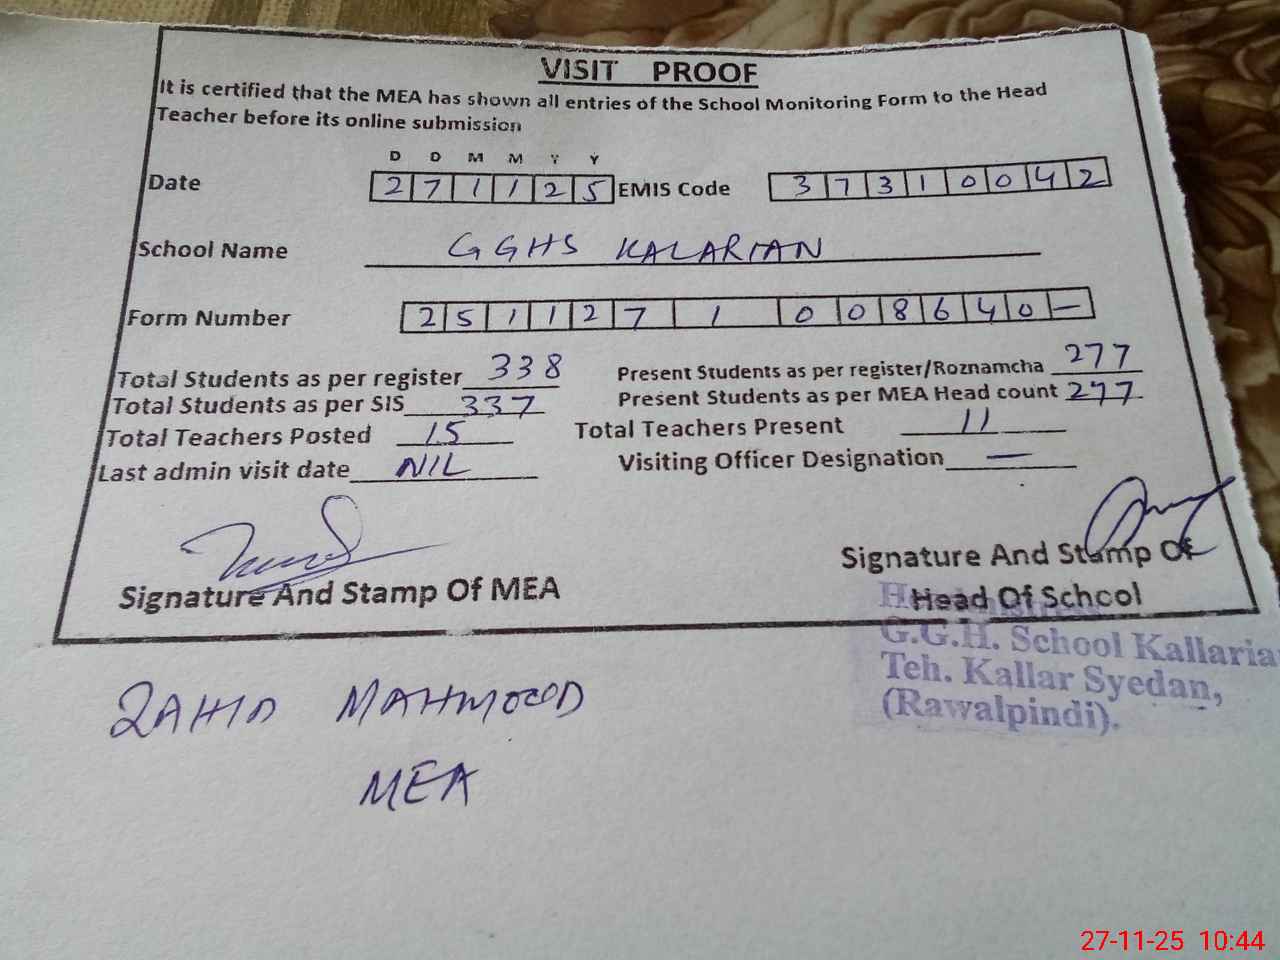 VISIT PROOF
It is certified that the MEA has shown all entries of the School Monitoring Form to the Head
Teacher before its online submission
D D M M Y Y
Date 2 7 1 1 2 5 EMIS Code 3 7 3 1 0 0 4 2
School Name GGHS KALARIAN
Form Number 2 5 1 1 2 7 1 0 0 8 6 4 0 —
Total Students as per register 338 Present Students as per register/Roznamcha 277
Total Students as per SIS 337 Present Students as per MEA Head count 277
Total Teachers Posted 15 Total Teachers Present 11
Last admin visit date NIL Visiting Officer Designation —
Signature And Stamp Of MEA
Signature And Stamp Of
Head Of School
G.G.H. School Kallaria
Teh. Kallar Syedan,
(Rawalpindi).
ZAHID MAHMOOD
MEA
27-11-25 10:44